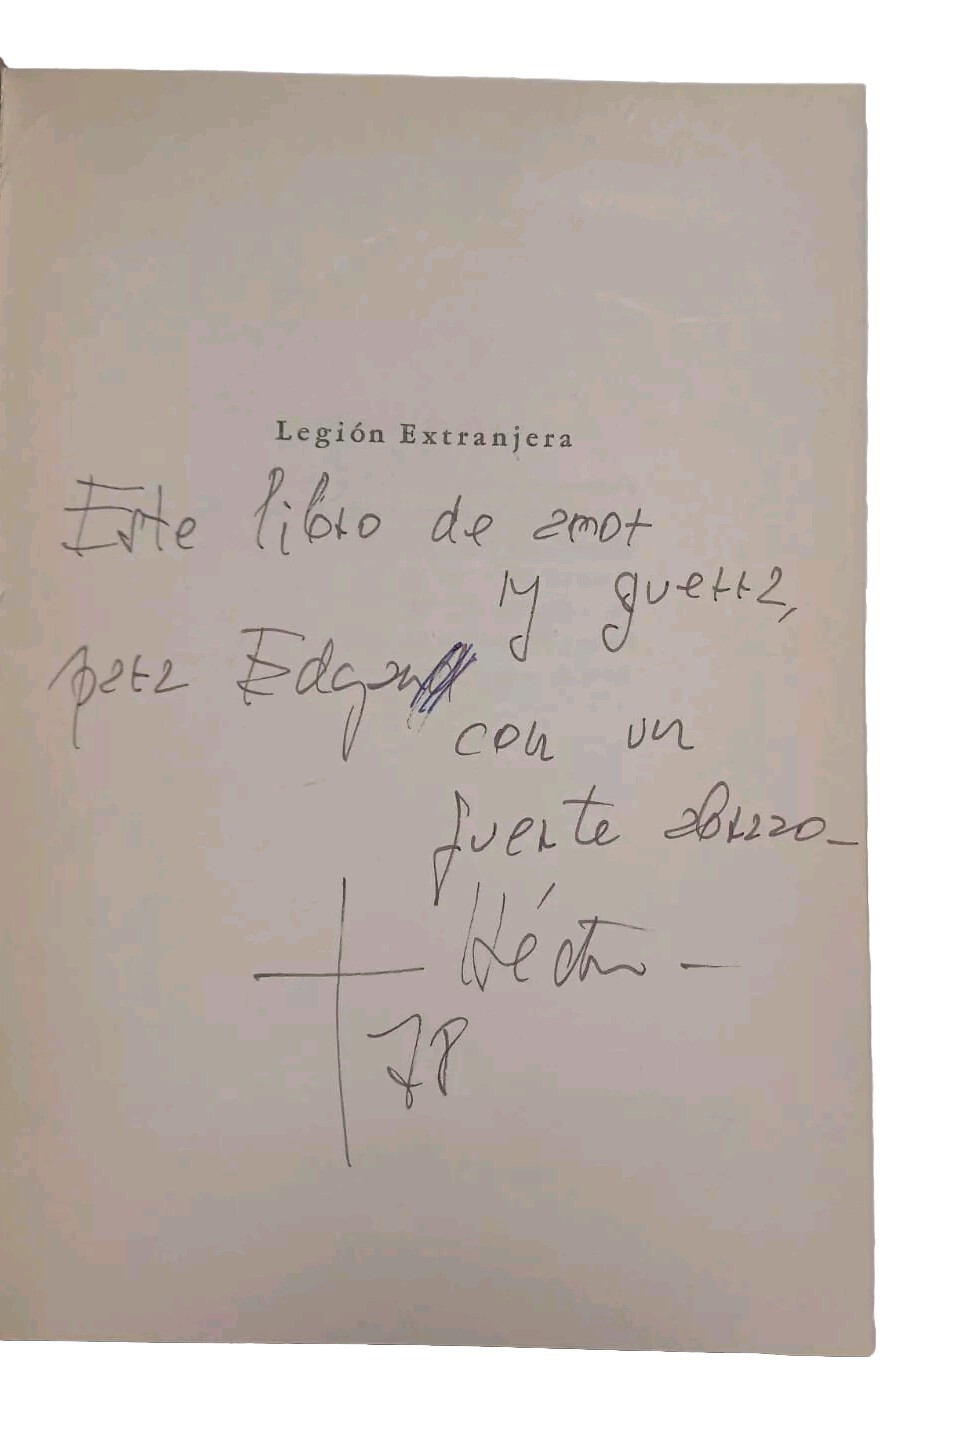 Legión Extranjera
Este libro de amor
y guerra,
para
con un
fuerte abrazo_
Héctor —
78